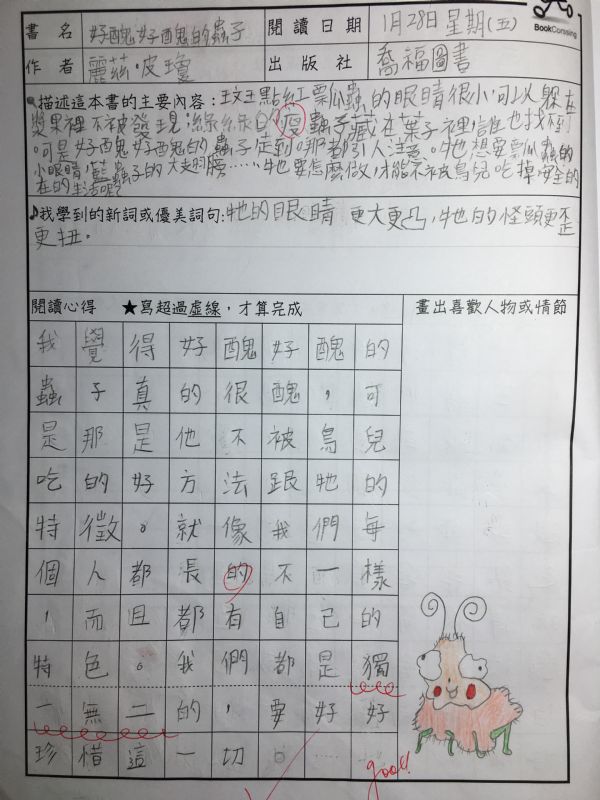 BookCorssing
書名 好醜好醜的蟲子 閱讀日期 1月28日星期(五)
作者 麗茲·皮瓊 出版社 喬福圖書
描述這本書的主要內容:斑點紅瓢蟲的眼睛很小,可以躲在
漿果裡不被發現;綠綠的瘦蟲子藏在葉子裡誰也找不到
。可是好醜好醜的蟲子走到哪都引人注意。牠想要瓢蟲的
小眼睛,藍蟲子的大翅膀……牠要怎麼做,才能不被鳥兒吃掉安全的
在的生活呢?
♪我學到的新詞或優美詞句:牠的眼睛 更大更凸,牠的怪頭更歪
更扭。
閱讀心得 ★寫超過虛線,才算完成 畫出喜歡人物或情節
我覺得好醜好醜的
蟲子真的很醜,可
是那是他不被鳥兒
吃的好方法跟牠的
特徵。就像我們每
個人都長的不一樣
,而且都有自己的
特色。我們都是獨
一無二的,要好好
珍惜這一切。
good!